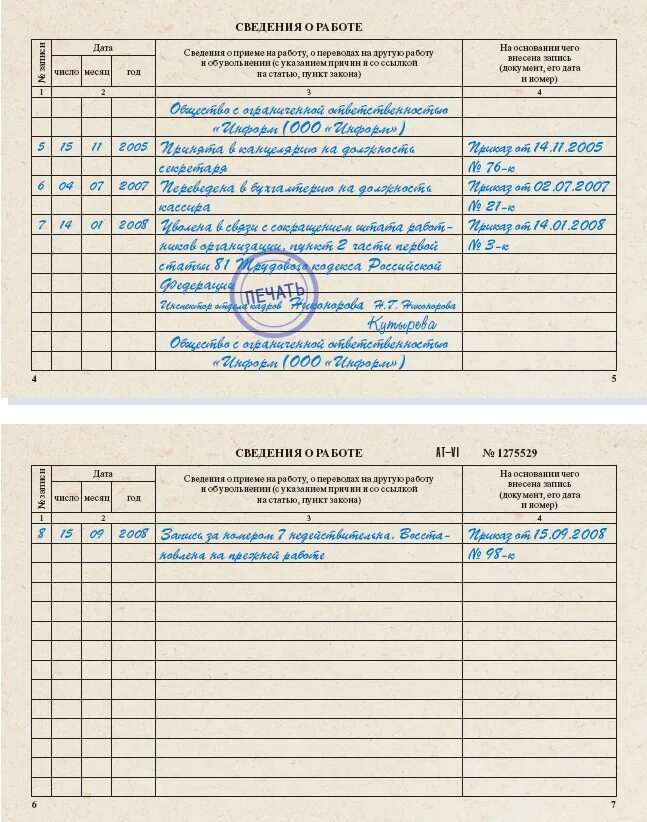 СВЕДЕНИЯ О РАБОТЕ
№ записи
Дата
число месяц год
Сведения о приеме на работу, о переводах на другую работу
и об увольнении (с указанием причин и со ссылкой
на статью, пункт закона)
На основании чего
внесена запись
(документ, его дата
и номер)
1 2 3 4
Общество с ограниченной ответственностью
«Информ (ООО «Информ»)
5 15 11 2005 Принята в канцелярию на должность Приказ от 14.11.2005
секретаря № 76-к
6 04 07 2007 Переведена в бухгалтерию на должность Приказ от 02.07.2007
кассира № 21-к
7 14 01 2008 Уволена в связи с сокращением штата работ- Приказ от 14.01.2008
ников организации, пункт 2 части первой № 3-к
статьи 81 Трудового кодекса Российской
Федерации
ПЕЧАТЬ
Инспектор отдела кадров Никонорова Н.Г. Никонорова
Кутырева
Общество с ограниченной ответственностью
«Информ (ООО «Информ»)
4 5
СВЕДЕНИЯ О РАБОТЕ AT-VI № 1275529
№ записи
Дата
число месяц год
Сведения о приеме на работу, о переводах на другую работу
и об увольнении (с указанием причин и со ссылкой
на статью, пункт закона)
На основании чего
внесена запись
(документ, его дата
и номер)
1 2 3 4
8 15 09 2008 Запись за номером 7 недействительна. Восста- Приказ от 15.09.2008
новлена на прежней работе № 98-к
6 7